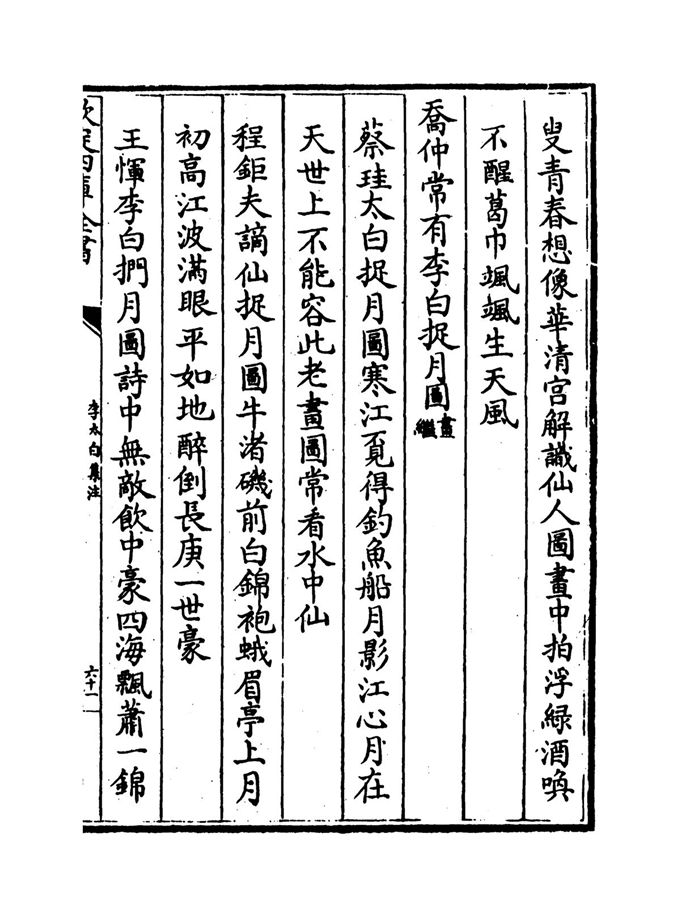 叟青春想像華清宫解識仙人圖畫中拍浮緑酒喚
不醒葛巾颯颯生天風
喬仲常有李白捉月圖畫繼
蔡珪太白捉月圖寒江覔得釣魚船月影江心月在
天世上不能容此老畫圖常看水中仙
程鉅夫謫仙捉月圖牛渚磯前白錦袍蛾眉亭上月
初高江波滿眼平如地醉倒長庚一世豪
王惲李白捫月圖詩中無敵飲中豪四海飄蕭一錦
欽定四庫全書
李太白集注
六十一